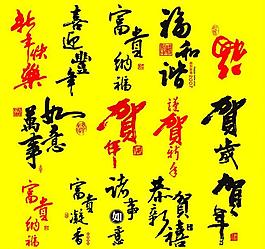 新年快樂
喜迎豐年
富貴納福
福和諧
福
萬事如意
賀年
謹賀新年
賀歲
富貴納福
富貴凝香
諸事如意
恭賀新禧
賀年